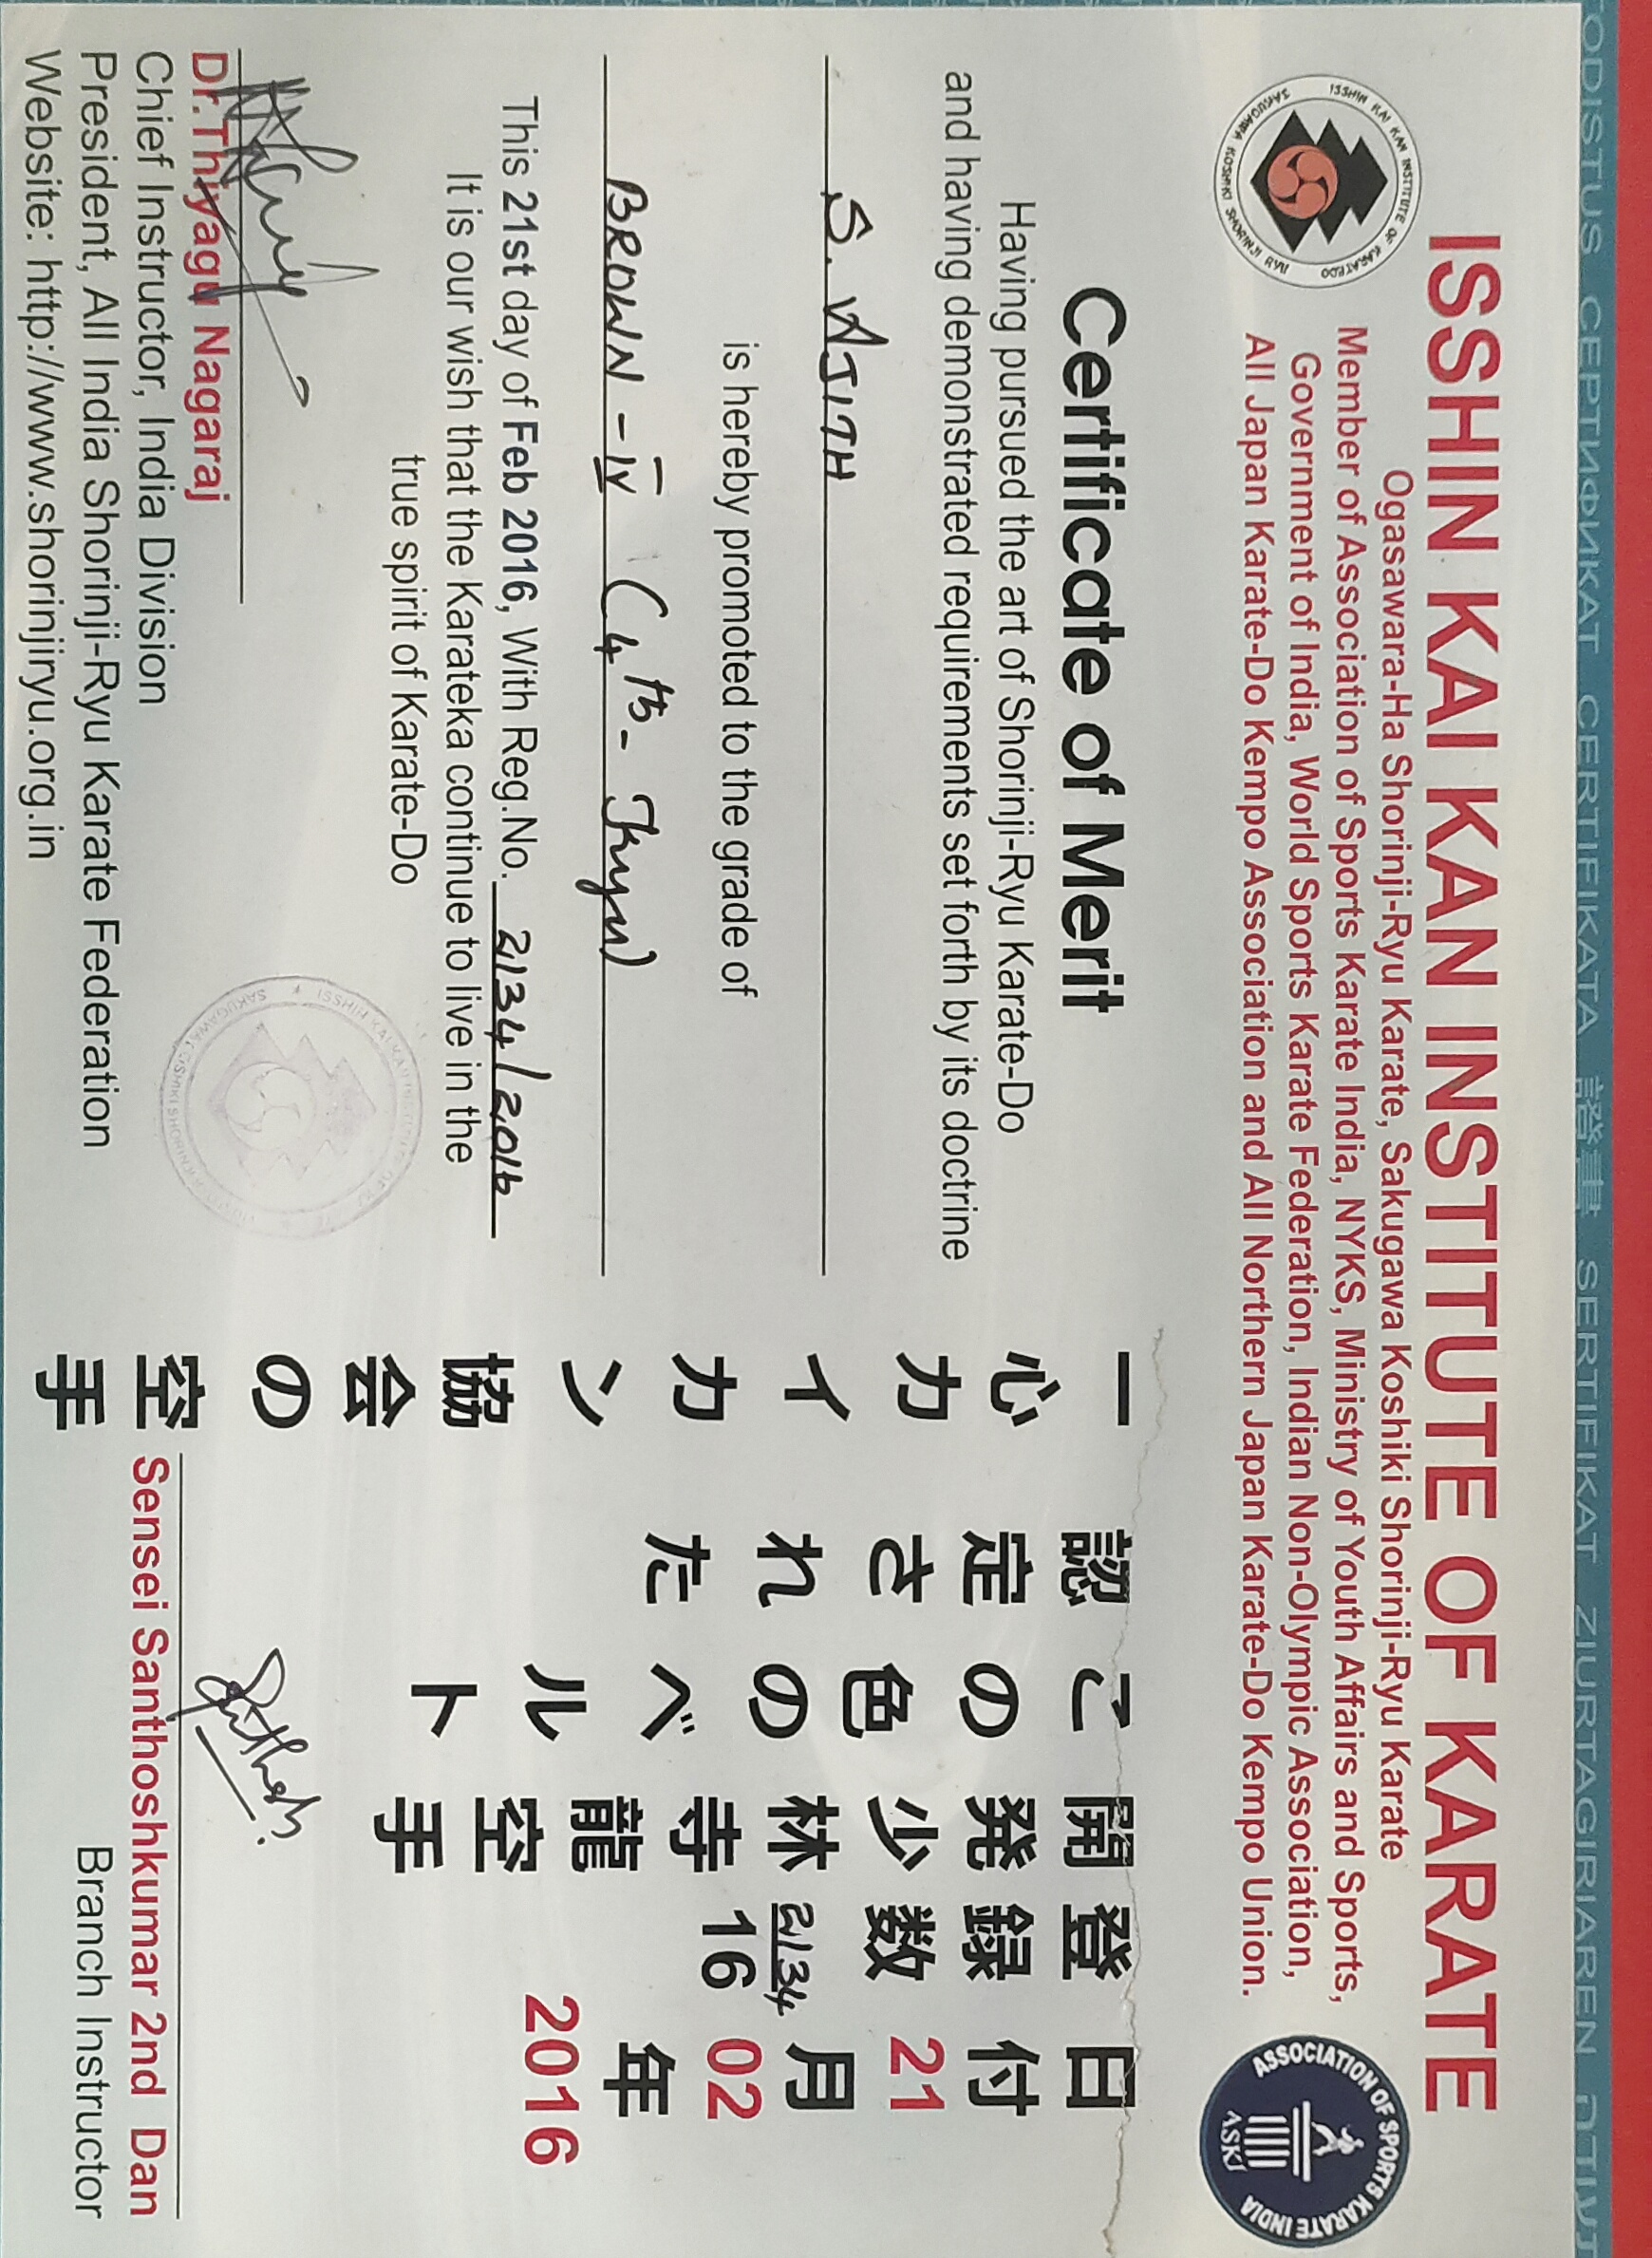 TODISTUS СЕРТИФИКАТ CERTIFIKATA 證書 SERTIFIKAT ZIURTAGIRIAREN
ISSHIN KAI KAN INSTITUTE OF KARATE
Ogasawara-Ha Shorinji-Ryu Karate, Sakugawa Koshiki Shorinji-Ryu Karate
Member of Association of Sports Karate India, NYKS, Ministry of Youth Affairs and Sports,
Government of India, World Sports Karate Federation, Indian Non-Olympic Association,
All Japan Karate-Do Kempo Association and All Northern Japan Karate-Do Kempo Union.
ISSHIN KAI KAN INSTITUTE OF KARATEDO
SAKUGAWA KOSHIKI SHORINJI RYU
ASSOCIATION OF SPORTS KARATE INDIA
ASKI
Certificate of Merit
Having pursued the art of Shorinji-Ryu Karate-Do
and having demonstrated requirements set forth by its doctrine
S. AJITH
is hereby promoted to the grade of
BROWN - IV (4th - Kyu)
This 21st day of Feb 2016, With Reg.No. 2134/2016
It is our wish that the Karateka continue to live in the
true spirit of Karate-Do
Dr.Thiyagu Nagaraj
Chief Instructor, India Division
President, All India Shorinji-Ryu Karate Federation
Website: http://www.shorinjiryu.org.in
日付21月02年2016
登録数2134 16
開発少林寺龍空手
この色のベルト
認定された
一心カイカン協会の空手
Sensei Santhoshkumar 2nd Dan
Branch Instructor